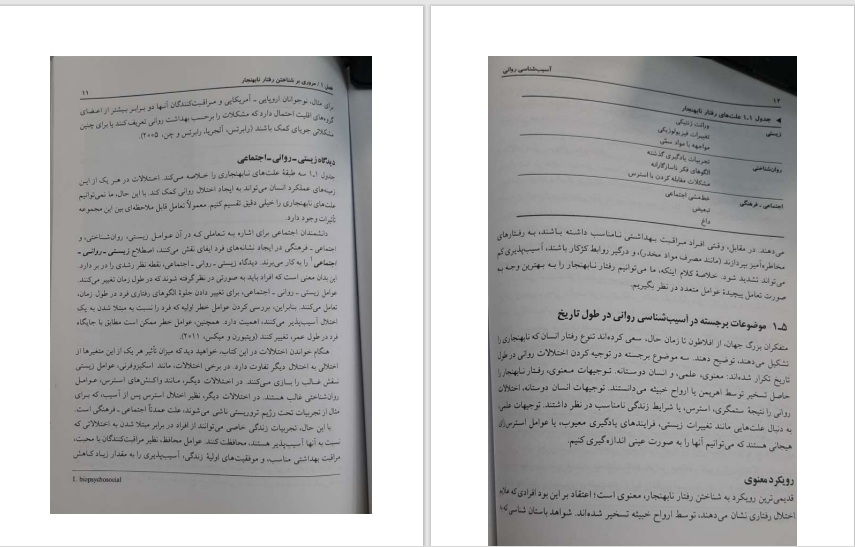 فصل ۱ / مروری بر شناختن رفتار نابهنجار
۱۱
برای مثال، نوجوانان اروپایی ـ آمریکایی و مراقبت‌کنندگان آنها دو برابر بیشتر از اعضای
گروه‌های اقلیت احتمال دارد که مشکلات را برحسب بهداشت روانی تعریف کنند یا برای چنین
مشکلاتی جویای کمک باشند (رابرتس، آلجریا، رابرتس و چن، ۲۰۰۵).
دیدگاه زیستی ـ روانی ـ اجتماعی
جدول ۱ـ۱ سه طبقهٔ علت‌های نابهنجاری را خلاصه می‌کند. اختلالات در هر یک از این
زمینه‌های عملکرد انسان می‌تواند به ایجاد اختلال روانی کمک کند. با این حال، ما نمی‌توانیم
علت‌های نابهنجاری را خیلی دقیق تقسیم کنیم. معمولاً تعامل قابل ملاحظه‌ای بین این مجموعه
تأثیرات وجود دارد.
دانشمندان اجتماعی برای اشاره به تعاملی که در آن عوامل زیستی، روان‌شناختی، و
اجتماعی ـ فرهنگی در ایجاد نشانه‌های فرد ایفای نقش می‌کنند، اصطلاح زیستی ـ روانی ـ
اجتماعی۱ را به کار می‌برند. دیدگاه زیستی ـ روانی ـ اجتماعی، نقطه نظر رشدی را در بر دارد.
این بدان معنی است که افراد باید به صورتی در نظر گرفته شوند که در طول زمان تغییر می‌کنند.
عوامل زیستی ـ روانی ـ اجتماعی، برای تغییر دادن جلوهٔ الگوهای رفتاری فرد در طول زمان،
تعامل می‌کنند. بنابراین، بررسی کردن عوامل خطر اولیه که فرد را نسبت به مبتلا شدن به یک
اختلال آسیب‌پذیر می‌کنند، اهمیت دارد. همچنین، عوامل خطر ممکن است مطابق با جایگاه
فرد در طول عمر، تغییر کنند (ویتبورن و میکس، ۲۰۱۱).
هنگام خواندن اختلالات در این کتاب، خواهید دید که میزان تأثیر هر یک از این متغیرها از
اختلالی به اختلال دیگر تفاوت دارد. در برخی اختلالات، مانند اسکیزوفرنی، عوامل زیستی
نقش غالب را بازی می‌کنند. در اختلالات دیگر، مانند واکنش‌های استرس، عوامل
روان‌شناختی غالب هستند. در اختلالات دیگر، نظیر اختلال استرس پس از آسیب، که برای
مثال از تجربیات تحت رژیم تروریستی ناشی می‌شوند، علت عمدتاً اجتماعی ـ فرهنگی است.
با این حال، تجربیات زندگی خاصی می‌توانند از افراد در برابر مبتلا شدن به اختلالاتی که
نسبت به آنها آسیب‌پذیر هستند، محافظت کنند. عوامل محافظ، نظیر مراقبت‌کنندگان با محبت،
مراقبت بهداشتی مناسب، و موفقیت‌های اولیهٔ زندگی، آسیب‌پذیری را به مقدار زیاد کاهش
1. biopsychosocial
آسیب‌شناسی روانی
۱۲
◀ جدول ۱ـ۱ علت‌های رفتار نابهنجار
زیستی وراثت ژنتیکی
تغییرات فیزیولوژیکی
مواجهه با مواد سمّی
روان‌شناختی تجربیات یادگیری گذشته
الگوهای فکر ناسازگارانه
مشکلات مقابله کردن با استرس
اجتماعی ـ فرهنگی خط‌مشی اجتماعی
تبعیض
داغ
می‌دهند. در مقابل، وقتی افراد مراقبت بهداشتی نامناسب داشته باشند، به رفتارهای
مخاطره‌آمیز بپردازند (مانند مصرف مواد مخدر)، و درگیر روابط کژکار باشند، آسیب‌پذیری کم
می‌تواند تشدید شود. خلاصهٔ کلام اینکه، ما می‌توانیم رفتار نابهنجار را به بهترین وجه به
صورت تعامل پیچیدهٔ عوامل متعدد در نظر بگیریم.
۵ـ۱ موضوعات برجسته در آسیب‌شناسی روانی در طول تاریخ
متفکران بزرگ جهان، از افلاطون تا زمان حال، سعی کرده‌اند تنوع رفتار انسان که نابهنجاری را
تشکیل می‌دهند، توضیح دهند. سه موضوع برجسته در توجیه کردن اختلالات روانی در طول
تاریخ تکرار شده‌اند: معنوی، علمی، و انسان دوستانه. توجیهات معنوی، رفتار نابهنجار را
حاصل تسخیر توسط اهریمن یا ارواح خبیثه می‌دانستند. توجیهات انسان دوستانه، اختلالات
روانی را نتیجهٔ ستمگری، استرس، یا شرایط زندگی نامناسب در نظر داشتند. توجیهات علمی
به دنبال علت‌هایی مانند تغییرات زیستی، فرایندهای یادگیری معیوب، یا عوامل استرس‌زای
هیجانی هستند که می‌توانیم آنها را به صورت عینی اندازه‌گیری کنیم.
رویکرد معنوی
قدیمی‌ترین رویکرد به شناختن رفتار نابهنجار، معنوی است؛ اعتقاد بر این بود افرادی که علایم
اختلال رفتاری نشان می‌دهند، توسط ارواح خبیثه تسخیر شده‌اند. شواهد باستان شناسی که